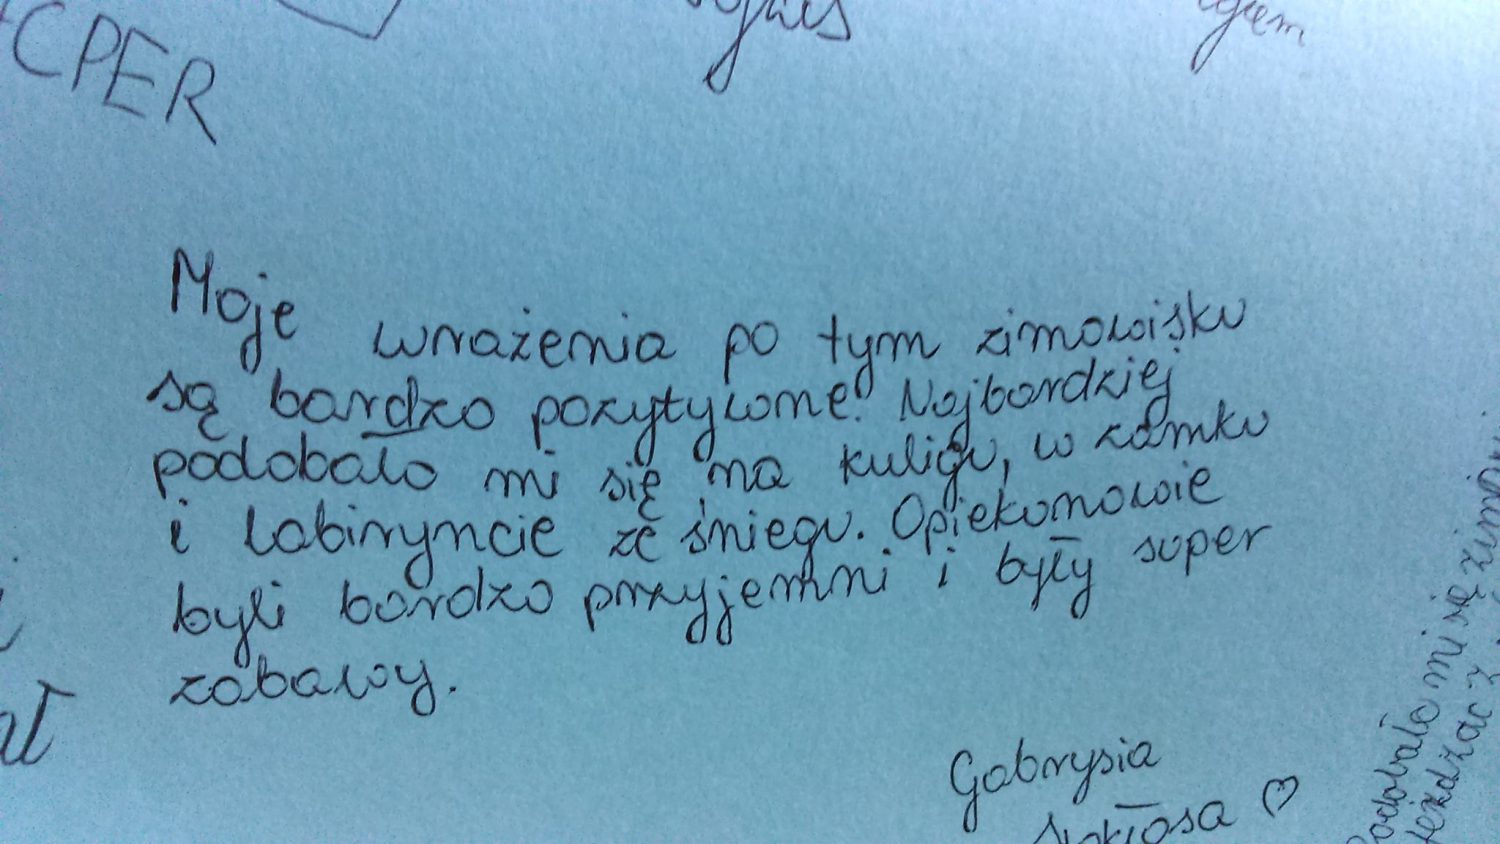 CPER
Moje wrażenia po tym zimowisku
są bardzo pozytywne. Najbardziej
podobało mi się na kuligu, w zamku
i labiryncie ze śniegu. Opiekunowie
byli bardzo przyjemni i były super
zabawy.
Gabrysia
Podobało mi się